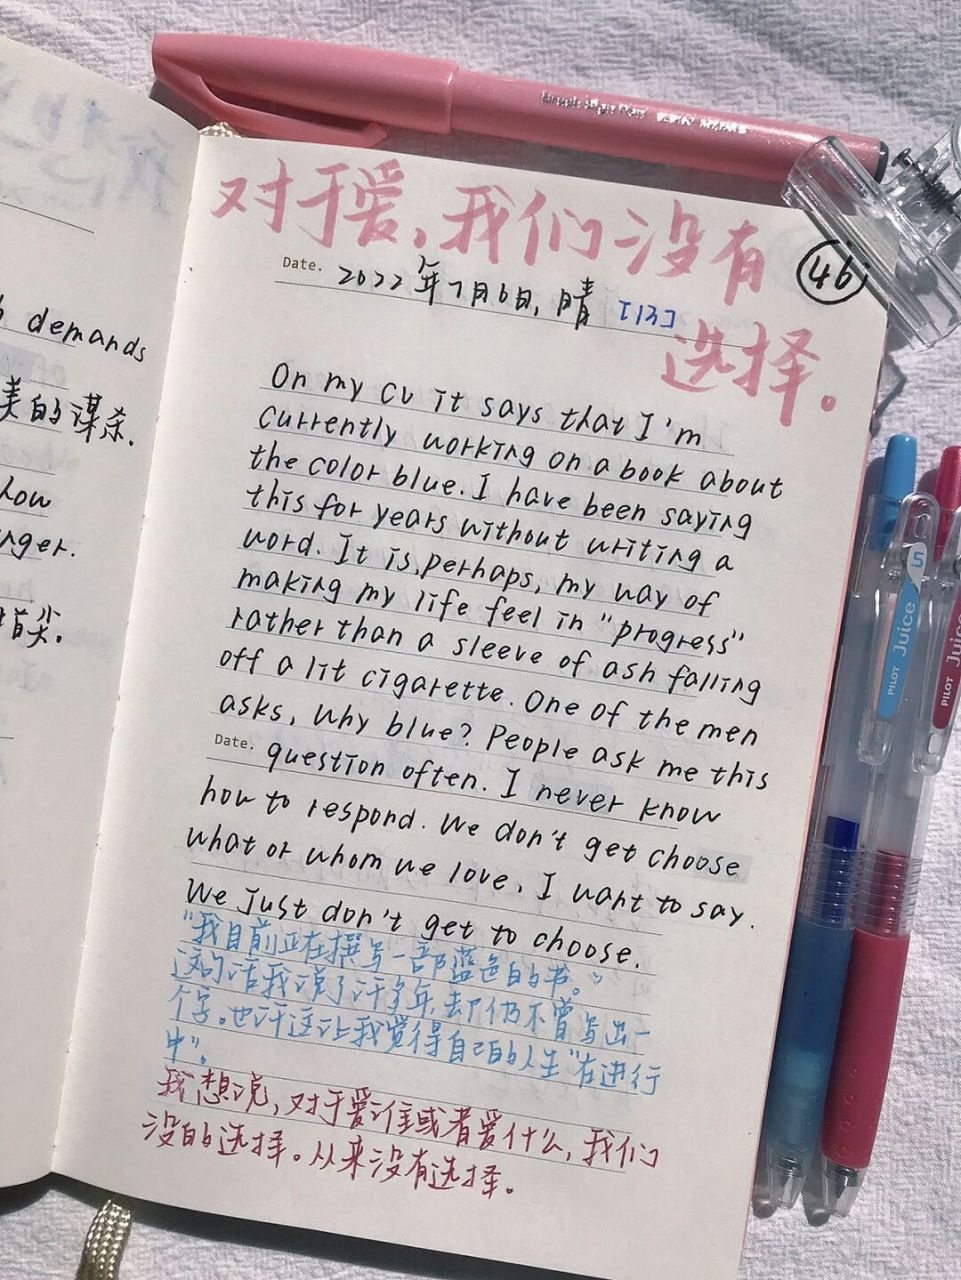 demands
美的谋杀.
how
nger.
指尖.
Brush Sign Pen
对于爱,我们没有
选择。
46
Date. 2022年7月6日,晴 [13]
On my cv it says that I'm
currently working on a book about
the color blue. I have been saying
this for years without writing a
word. It is, perhaps, my way of
making my life feel in "progress"
rather than a sleeve of ash falling
off a lit cigarette. One of the men
asks, Why blue? People ask me this
Date. question often. I never know
how to respond. We don't get choose
what or whom we love, I want to say.
We just don't get to choose.
"我目前正在撰写一部蓝色的书。"
这句话我说了许多年,却仍不曾写出一
个字。也许这让我觉得自己的人生"在进行
中"。
我想说,对于爱谁或者爱什么,我们
没的选择。从来没有选择。
PILOT Juice 05
PILOT Juice